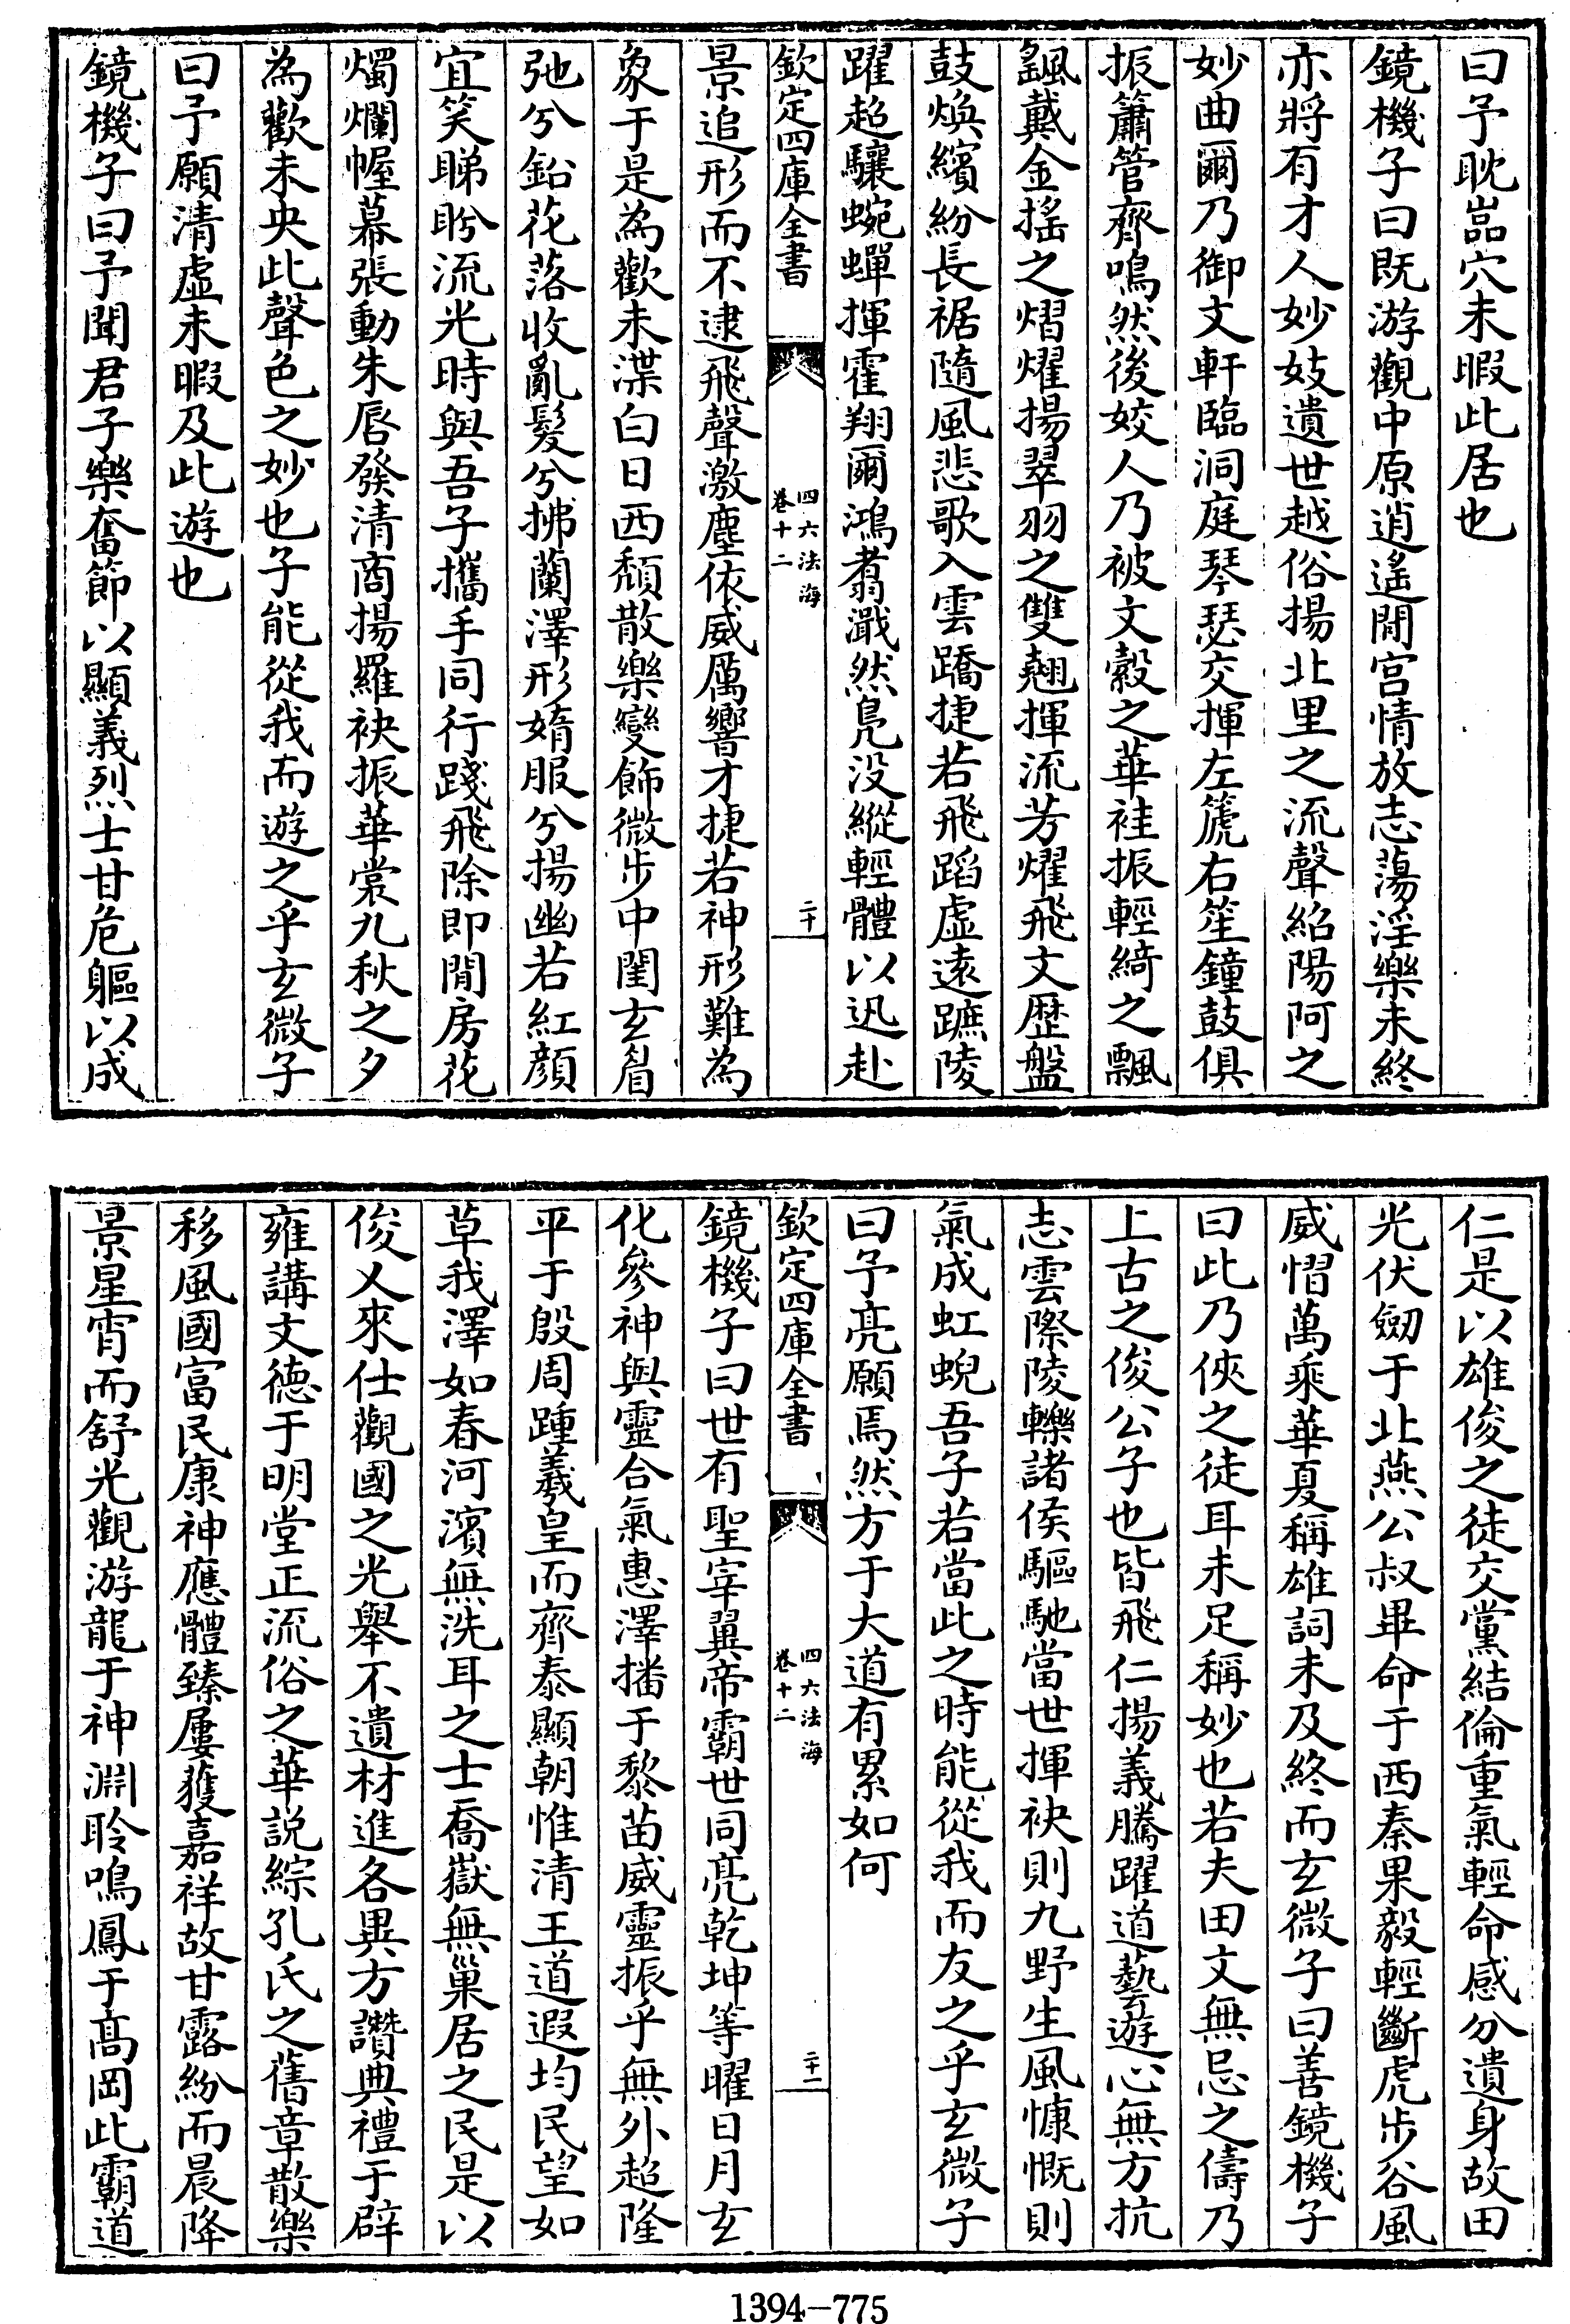 曰予耽嵓穴未暇此居也
鏡機子曰既游觀中原逍遙閒宫情放志蕩淫樂未終
亦將有才人妙妓遺世越俗揚北里之流聲紹陽阿之
妙曲爾乃御文軒臨洞庭琴瑟交揮左篪右笙鐘鼓俱
振簫管齊鳴然後姣人乃被文縠之華袿振輕綺之飄
颻戴金搖之熠燿揚翠羽之雙翹揮流芳燿飛文歴盤
鼓煥繽紛長裾隨風悲歌入雲蹻捷若飛蹈虚遠蹠陵
躍超驤蜿蟬揮霍翔爾鴻翥濈然鳧没縱輕體以迅赴
欽定四庫全書
四六法海
卷十二
二十
景追形而不逮飛聲激塵依威厲響才捷若神形難為
象于是為歡未渫白日西頽散樂變飾微步中閨玄眉
弛兮鉛花落收亂髪兮拂蘭澤形媠服兮揚幽若紅顔
宜笑睇盼流光時與吾子攜手同行踐飛除即閒房花
燭爛幄幕張動朱唇發清商揚羅袂振華裳九秋之夕
為歡未央此聲色之妙也子能從我而遊之乎玄微子
曰予願清虚未暇及此遊也
鏡機子曰予聞君子樂奮節以顯義烈士甘危軀以成
仁是以雄俊之徒交黨結倫重氣輕命感分遺身故田
光伏劒于北燕公叔畢命于西秦果毅輕斷虎步谷風
威慴萬乘華夏稱雄詞未及終而玄微子曰善鏡機子
曰此乃俠之徒耳未足稱妙也若夫田文無忌之儔乃
上古之俊公子也皆飛仁揚義騰躍道藝遊心無方抗
志雲際陵轢諸侯驅馳當世揮袂則九野生風慷慨則
氣成虹蜺吾子若當此之時能從我而友之乎玄微子
曰予亮願焉然方于大道有累如何
欽定四庫全書
四六法海
卷十二
二十一
鏡機子曰世有聖宰翼帝霸世同亮乾坤等曜日月玄
化參神與靈合氣惠澤播于黎苗威靈振乎無外超隆
平于殷周踵羲皇而齊泰顯朝惟清王道遐均民望如
草我澤如春河濱無洗耳之士喬嶽無巢居之民是以
俊乂來仕觀國之光舉不遺材進各異方讚典禮于辟
雍講文德于明堂正流俗之華説綜孔氏之舊章散樂
移風國富民康神應體臻屢獲嘉祥故甘露紛而晨降
景星宵而舒光觀游龍于神淵聆鳴鳳于髙岡此霸道
1394-775